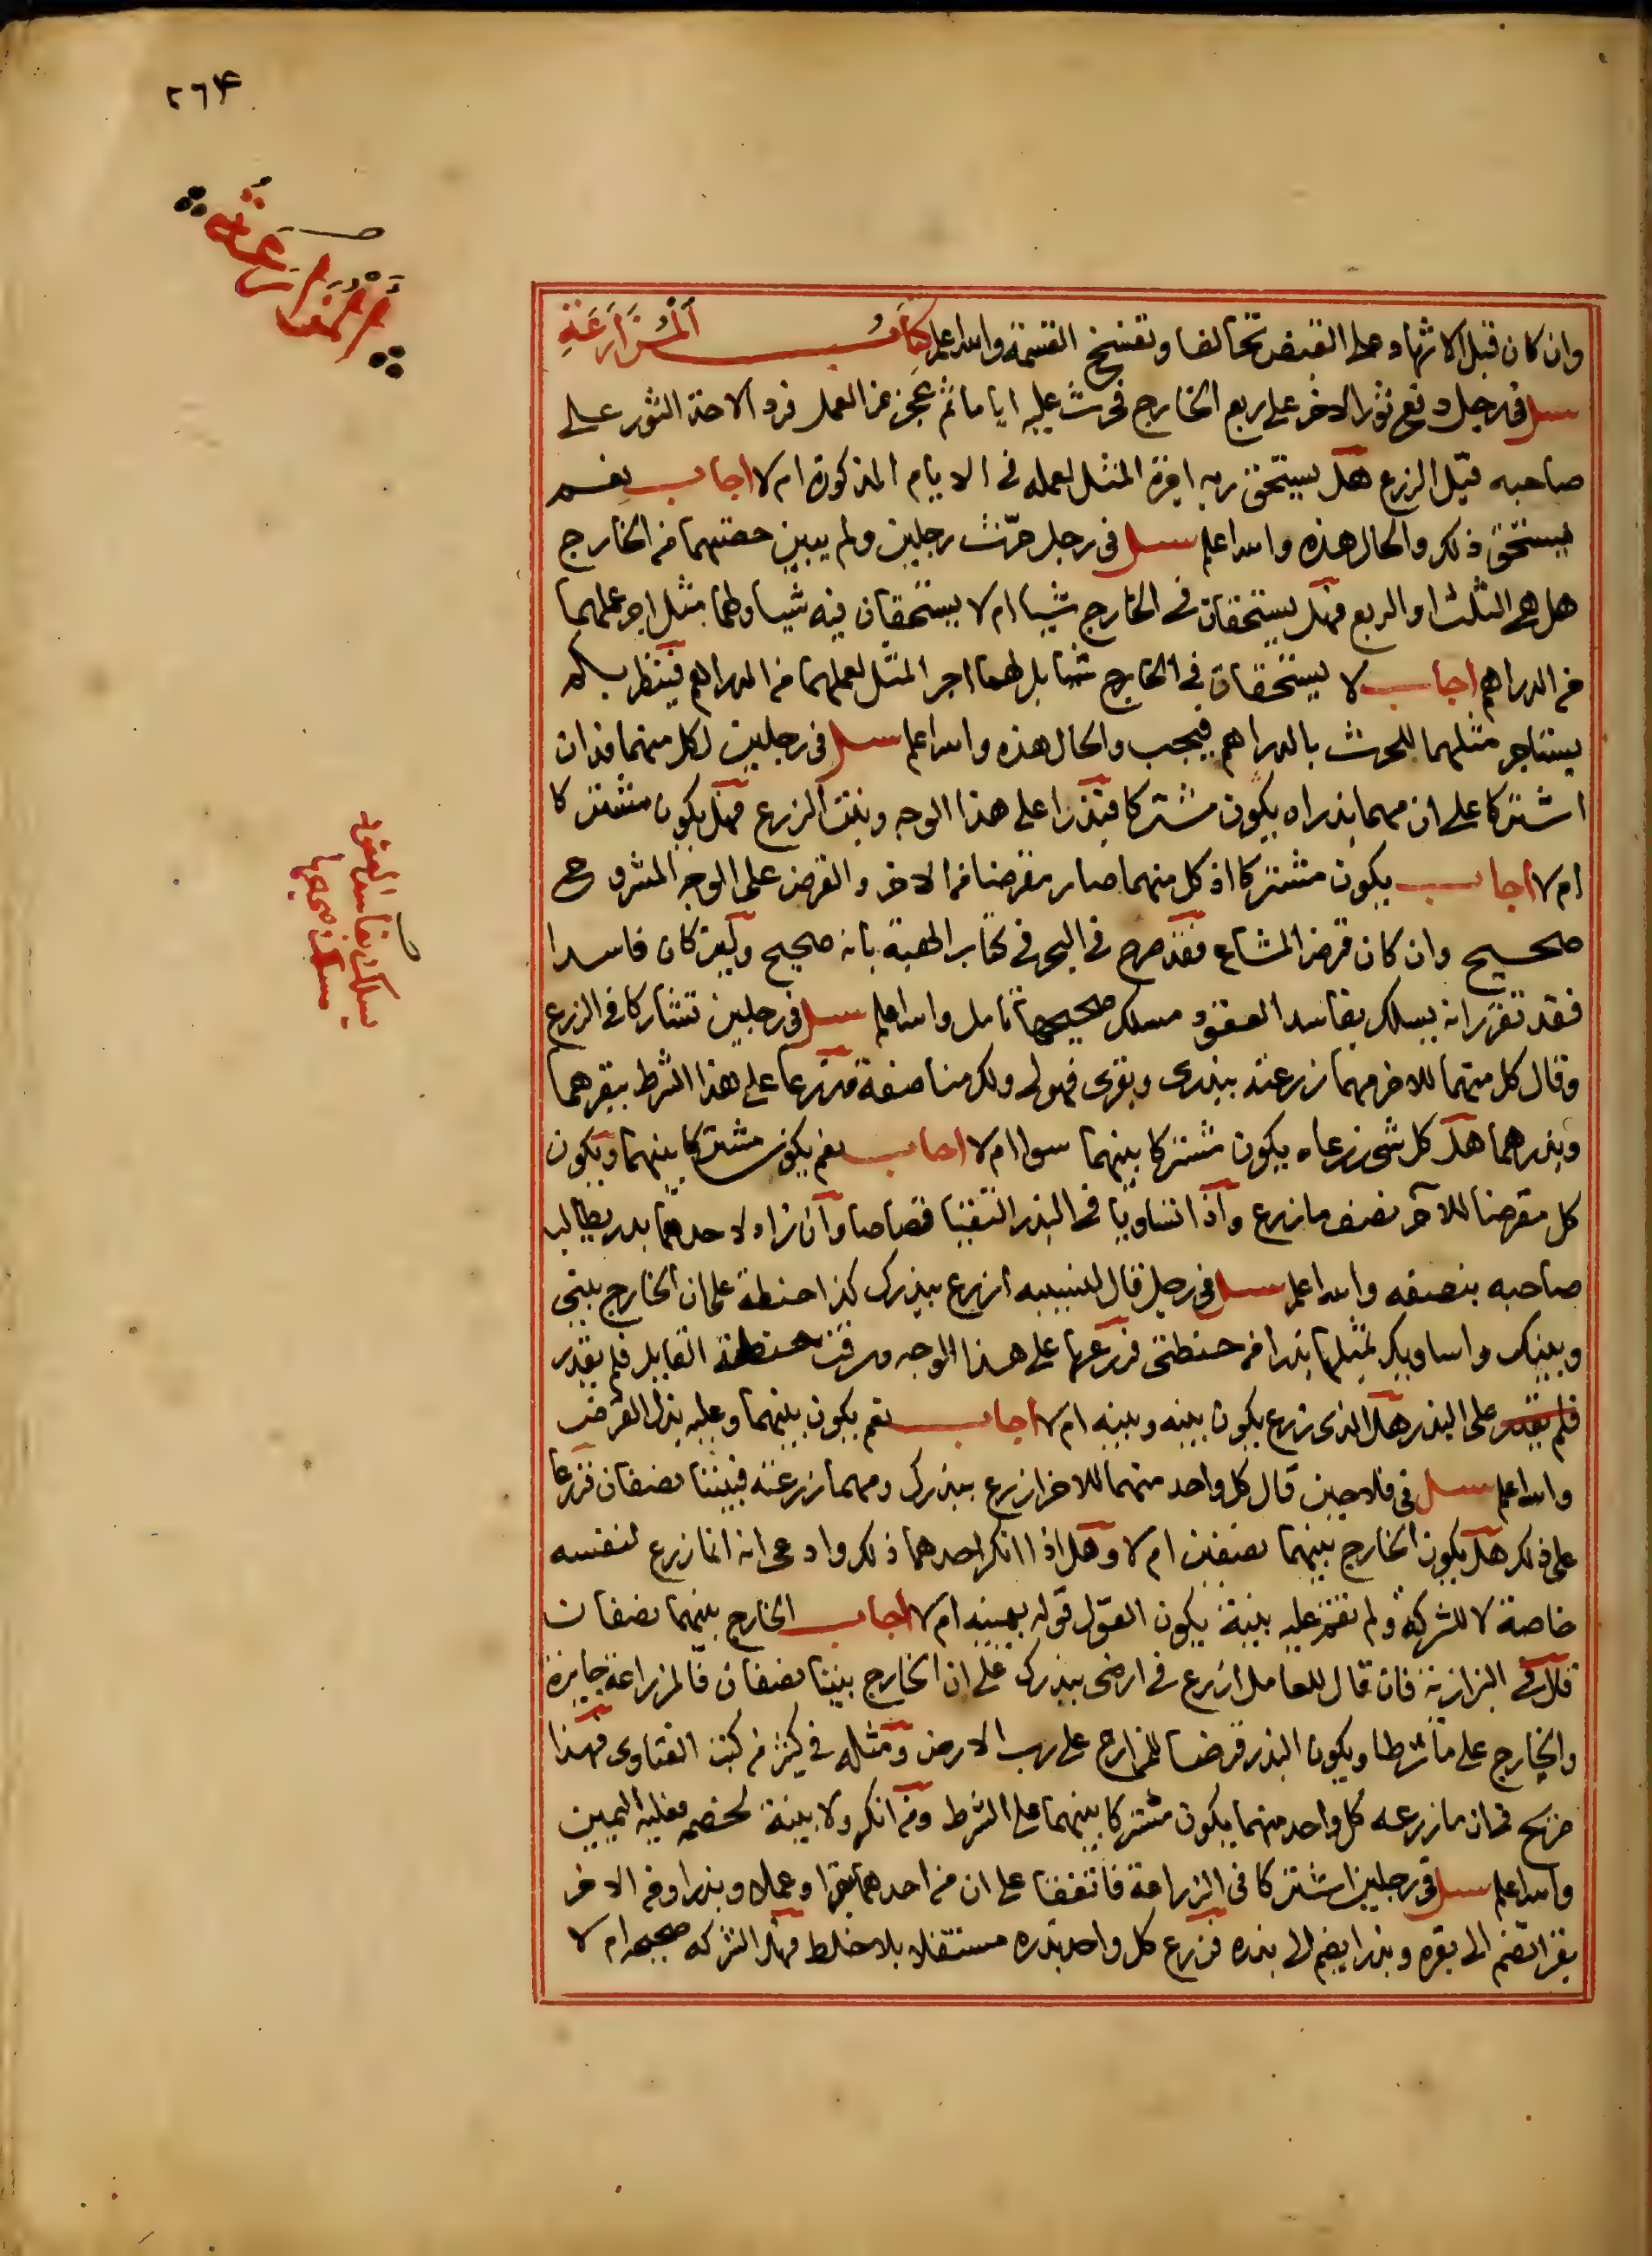 ٢٦٤
المزارعة
وان كان قبل الاشهاد على القبض تحالفا وتفسخ القسمة والله اعلم كتاب المزارعة
سئل في رجل دفع ثورا لاخر على ربع الخارج فحرث عليه اياما ثم عجز عن العمل فرد الاخذ الثور على
صاحبه قبل الزرع هل يستحق ربه اجرة المثل لعمله في الايام المذكورة ام لا اجاب نعم
يستحق ذلك والحال هذه والله اعلم سئل في رجل حرّث رجلين ولم يبين حصتهما من الخارج
هل هي الثلث او الربع فهل يستحقان في الخارج شيا ام لا يستحقان فيه شيا ولهما مثل اجر عملهما
من الدراهم اجاب لا يستحقان في الخارج شيا بل لهما اجر المثل لعملهما من الدراهم فينظر بكم
يستاجر مثلهما للحرث بالدراهم فيجب والحال هذه والله اعلم سئل في رجلين لكل منهما فدان
اشتركا على ان مهما بذراه يكون مشتركا فبذرا على هذا الوجه ونبت الزرع فهل يكون مشتركا
ام لا اجاب يكون مشتركا اذ كل منهما صار مقرضا من الاخر والقرض على الوجه المشروح
صحيح وان كان قرض المشاع فقد صرح في البحر في كتاب الهبة بانه صحيح ولين كان فاسدا
فقد تقرر انه يسلك بفاسد العقود مسلك صحيحها تامل والله اعلم سئل في رجلين تشاركا في الزرع
وقال كل منهما للاخر مهما زرعته ببذري وبقري فهو لي ولك مناصفة فزرعا على هذا الشرط ببقرهما
وبذرهما هل كل شي زرعاه يكون مشتركا بينهما سوا ام لا اجاب نعم يكون مشتركا بينهما ويكون
كل مقرضا للآخر نصف ما زرع واذا تساويا في البذر التقيا قصاصا وان زاد لاحدهما بذر يطالب
صاحبه بنصفه والله اعلم سئل في رجل قال لنسيبه ازرع ببذرك كذا حنطة على ان الخارج بيني
وبينك واساويك بمثلها بذرا من حنطتي فزرعها على هذا الوجه وسرقت حنطة القايل فلم يقدر
فلم يقدر على البذر هل الذي زرع يكون بينه وبينه ام لا اجاب نعم يكون بينهما وعليه بذل القرض
والله اعلم سئل في فلاحين قال كل واحد منهما للاخر ازرع ببذرك ومهما زرعته فبيننا نصفان فزرعا
على ذلك هل يكون الخارج بينهما نصفين ام لا وهل اذا انكر احدهما ذلك وادعى انه انما زرع لنفسه
خاصة لا للشركة ولم تقم عليه بينة يكون القول قوله بيمينه ام لا اجاب الخارج بينهما نصفان
قال في البزازية فان قال للعامل ازرع في ارضي ببذرك على ان الخارج بيننا نصفان فالمزارعة جايزة
والخارج على ما شرطا ويكون البذر قرضا للمزارع على رب الارض ومثله في كثير من كتب الفتاوى فهذا
صريح في ان ما زرعه كل واحد منهما يكون مشتركا بينهما على الشرط ومن انكر ولا بينة لخصمه فعليه اليمين
والله اعلم سئل في رجلين اشتركا في الزراعة فاتفقا على ان من احدهما بقرا وعملا وبذرا ومن الاخر
بقرا تضم الى بقره وبذرا يضم الى بذره فزرع كل واحد بذره مستقلا بلا خلط فهل الشركه صحيحه ام لا
يسلك بفاسد العقود
مسلك صحيحها